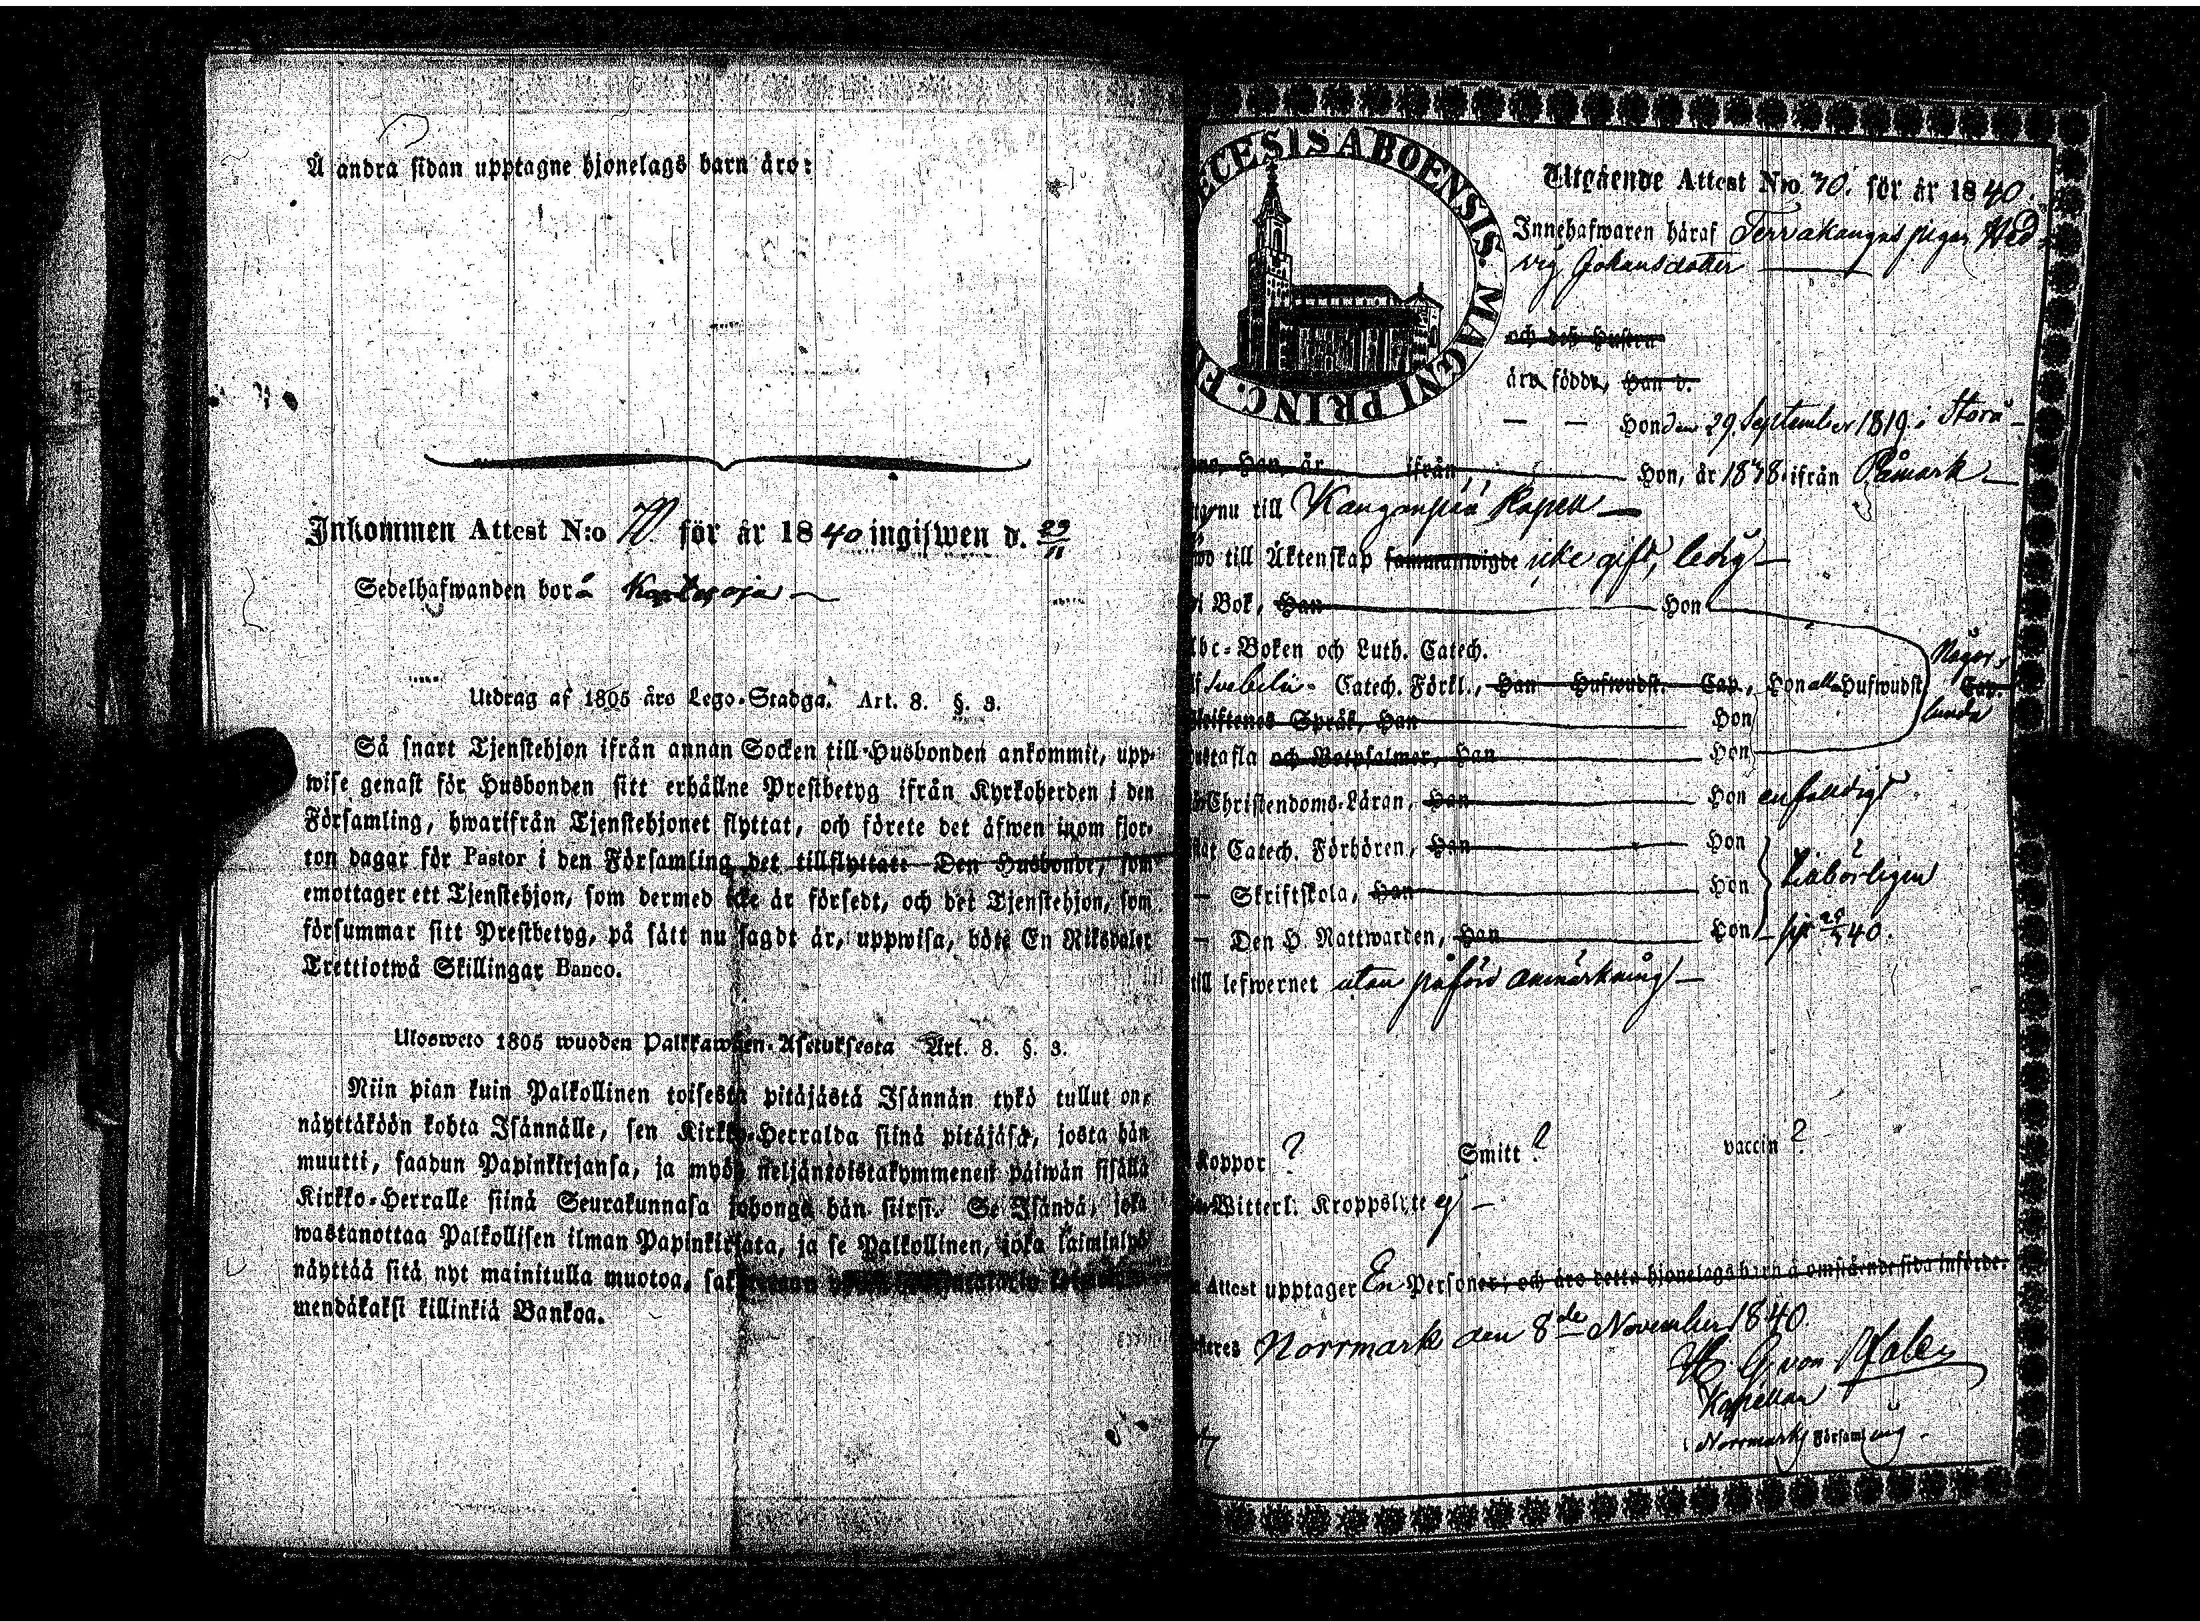 Å andra sidan upptagne hjonelags barn äro:
Inkommen Attest N:o 70 för år 1840 ingifwen d. 29/11
Sedelhafwanden bor å
Utdrag af 1805 års Lego-Stadga. Art. 8. §. 3.
Så snart Tjenstehjon ifrån annan Socken till Husbonden ankommit, upp-
wise genast för Husbonden sitt erhållne Prestbetyg ifrån Kyrkoherden i den
Församling, hwarifrån Tjenstehjonet flyttat, och förete det äfwen inom fjor-
ton dagar för Pastor i den Församling det tillflyttat: Den Husbonde, som
emottager ett Tjenstehjon, som dermed icke är försedt, och det Tjenstehjon, som
försummar sitt Prestbetyg, på sätt nu sagdt är, uppwisa, böte En Riksdaler
Trettiotwå Skillingar Banco.
Ulosweto 1805 wuoden Palkkawäen-Asetuksesta Art. 8. §. 3.
Niin pian kuin Palkollinen toisesta pitäjästä Isännän tykö tullut on,
näyttäköön kohta Isännälle, sen Kirkko-Herralda siinä pitäjäsä, josta hän
muutti, saadun Papinkirjansa, ja myös neljäntoistakymmenen päiwän sisällä
Kirkko-Herralle siinä Seurakunnasa johonga hän siirsi. Se Isändä, joka
wastanottaa Palkollisen ilman Papinkirjata, ja se Palkollinen, joka laiminlyö
näyttää sitä nyt mainitulla muotoa,
mendäkaksi killinkiä Bankoa.
ECESIS ABOENSIS. MAGNI PRINC. F
Utgående Attest N:o 70. för år 1840.
Innehafwaren häraf Terrakangas pigan Hed
vig Johansdotter
och deß Hustru
äro födde, Han d.
Hon den 29 September 1819 i Storå
Han, år ifrån Hon, år 1838 ifrån Påmark
nu till Kangonpää Kapell
till Äktenskap sammanwigde icke gift, ledig
i Bok, Han Hon
Abc-Boken och Luth. Catech.
Svebelii Catech. Förkl., Han Hufwudst. Cap., Hon alla Hufwudst. Cap. Någor-
lunda
Skriftenes Språk, Han Hon
Hustafla och Botpsalmer, Han Hon
Christendoms-Läran, Han Hon enfaldigt
Catech. Förhören, Han Hon
Skriftskola, Han Hon tillbörligen
Den H. Nattwarden, Han Hon
till lefwernet utan påförd anmärkning
Koppor ? Smitt ? vaccin ?
Witterl. Kroppslyte ej
Attest upptager En Personer; och äro detta hjonelags barn å omstående sida införde.
Norrmark den 8de November 1840.
Kapellan
i Norrmarks Församling.